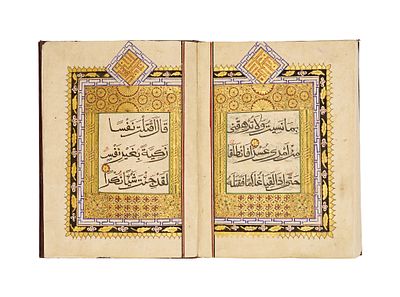 بما نسيت ولا ترهقني
من أمري عسرا فانطلقا
حتى إذا لقيا غلاما فقتله
قال أقتلت نفسا
زكية بغير نفس
لقد جئت شيئا نكرا